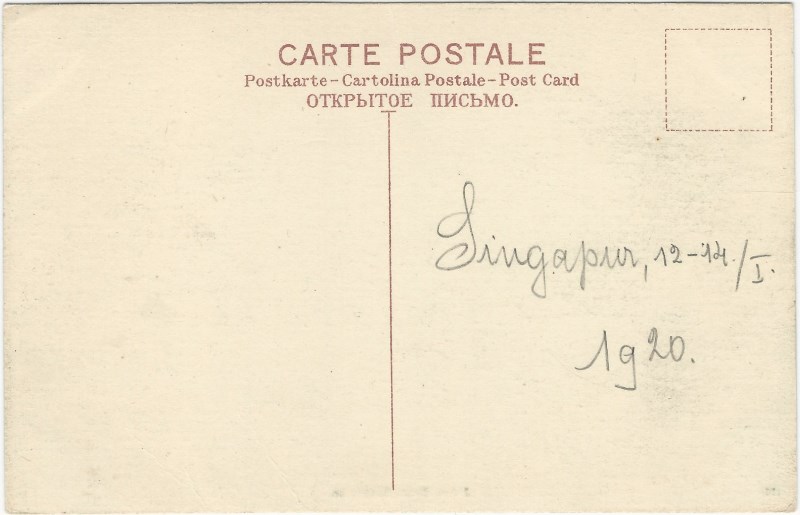 CARTE POSTALE
Postkarte – Cartolina Postale – Post Card
ОТКРЫТОЕ ПИСЬМО.
Singapur, 12-14./I.
1920.